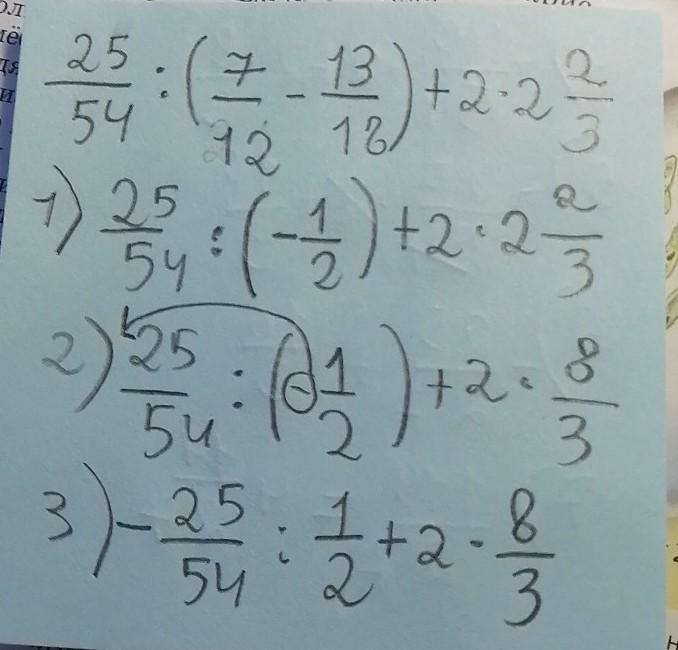 25/54 : (7/12 - 13/18) + 2 · 2 2/3
1) 25/54 : (-1/2) + 2 · 2 2/3
2) 25/54 : (-1/2) + 2 · 8/3
3) -25/54 : 1/2 + 2 · 8/3